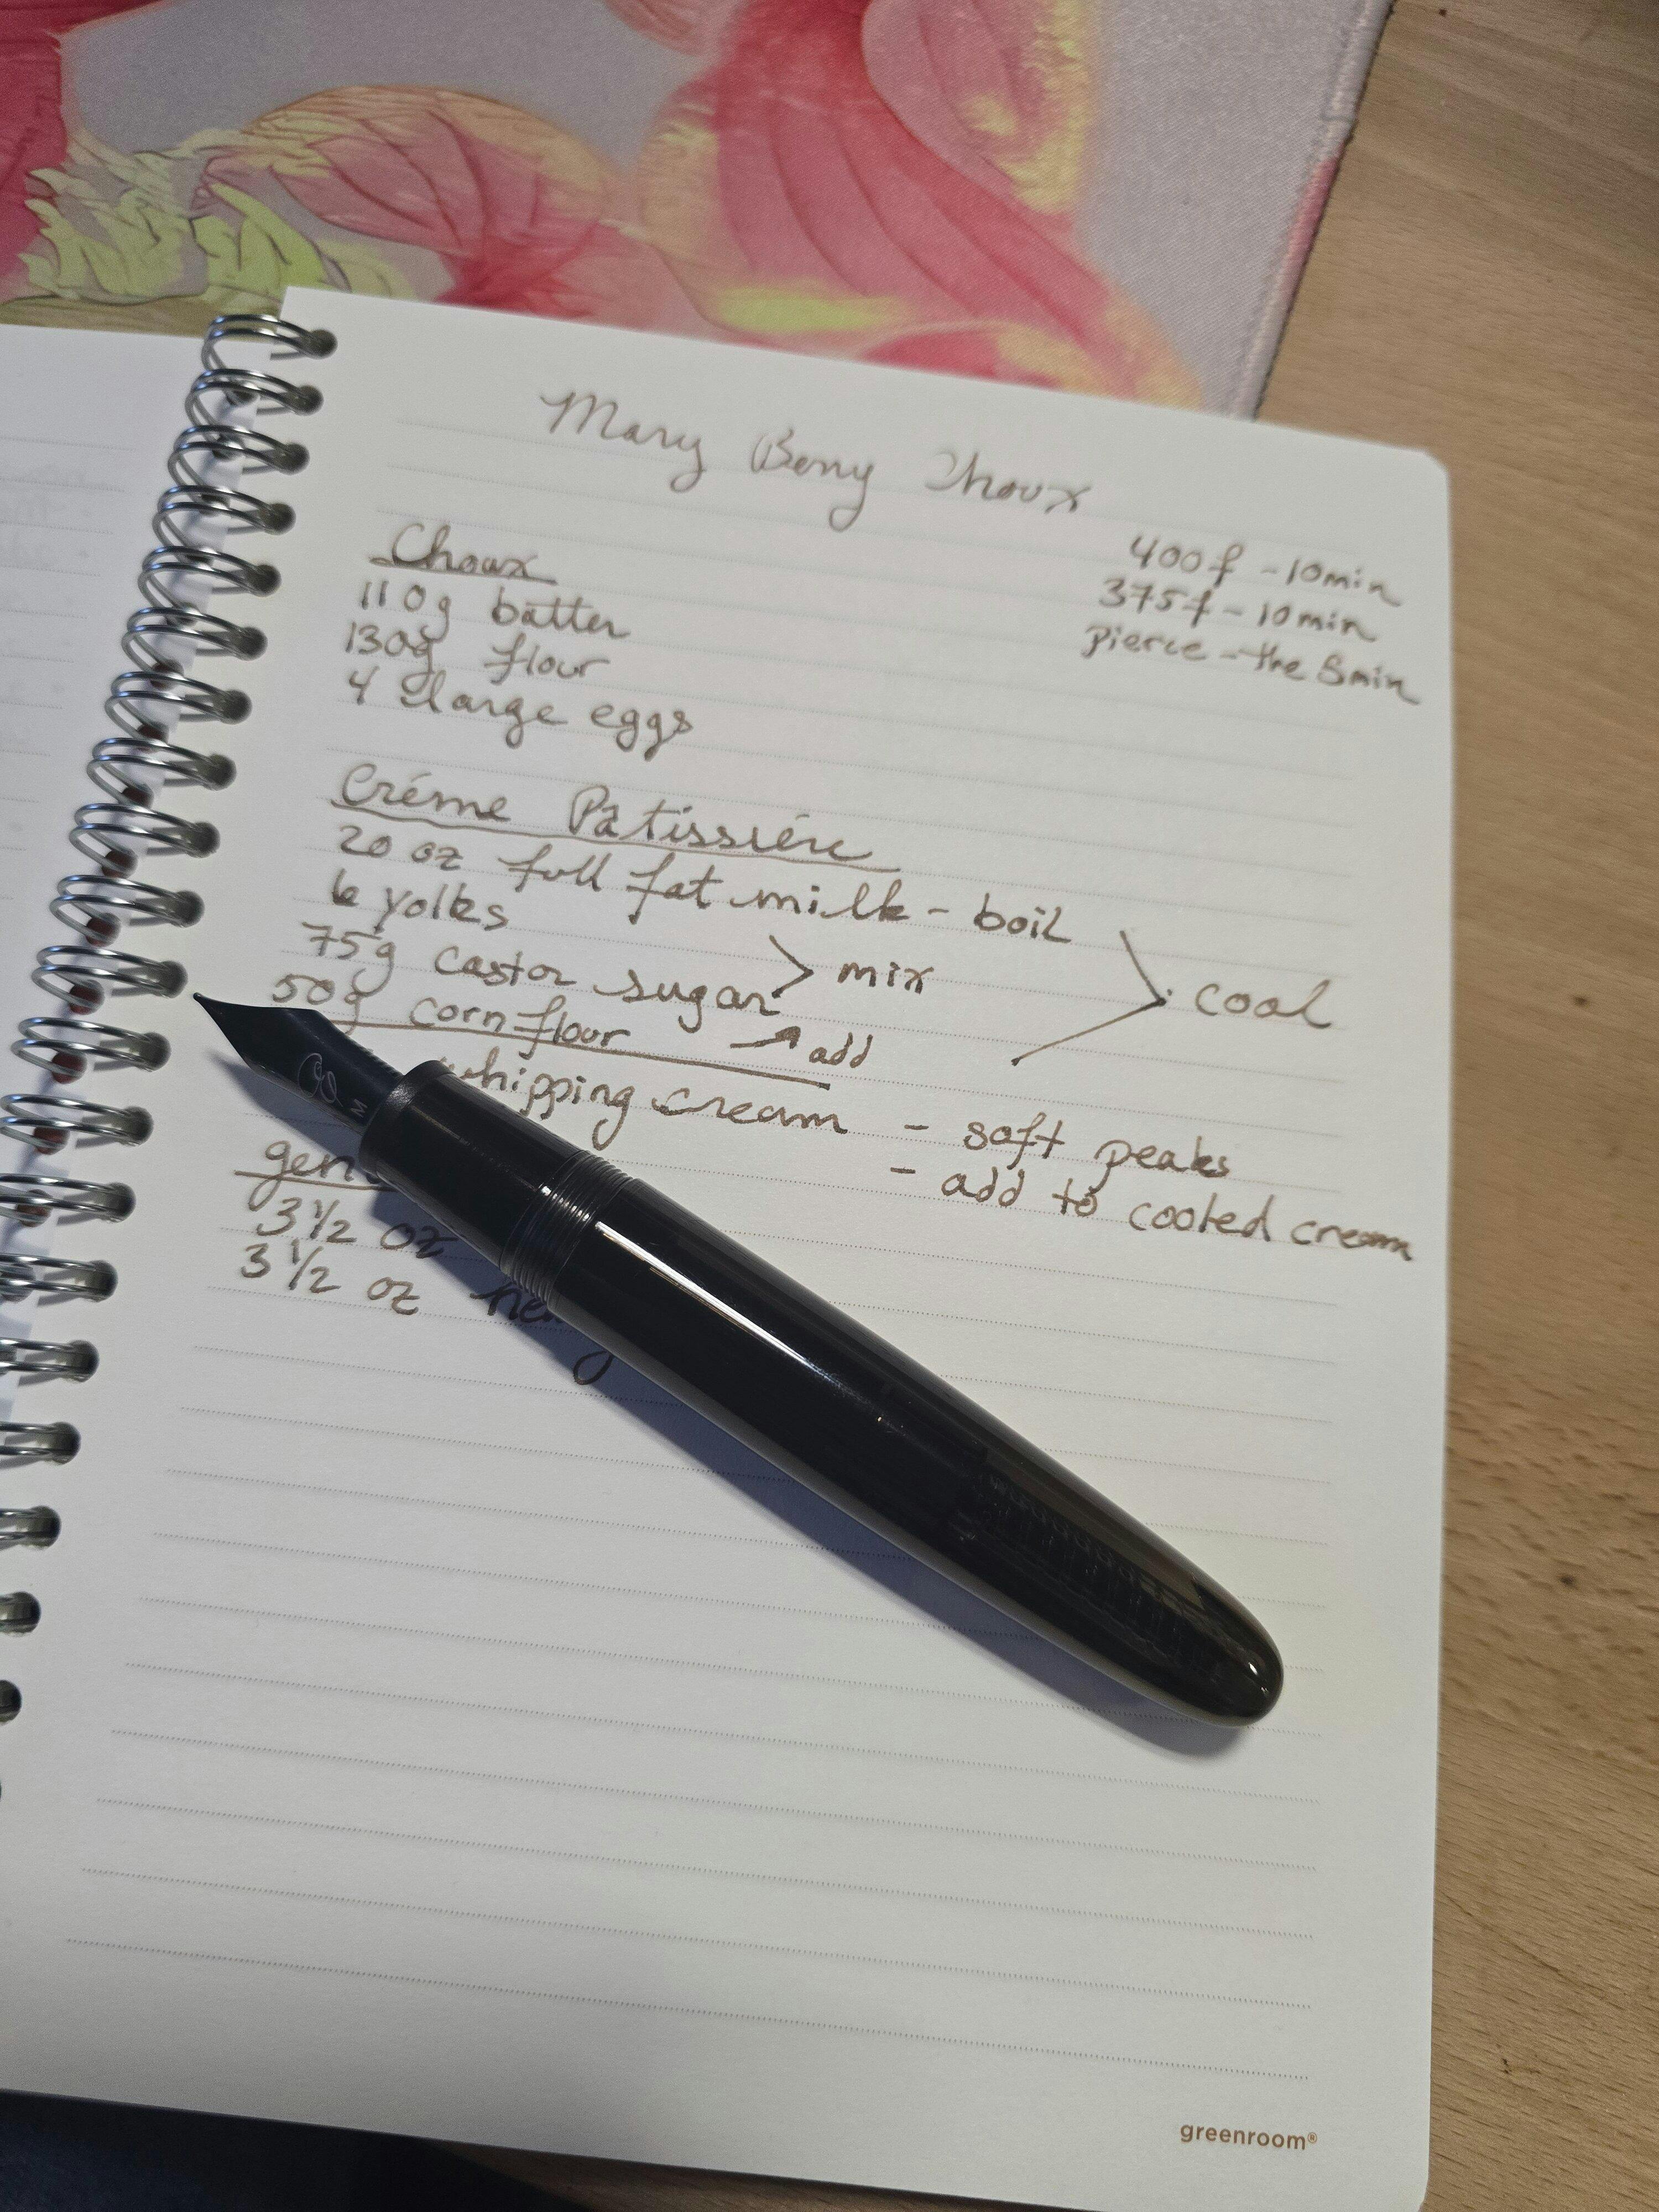 Mary Berry Choux
400f - 10min
375f - 10min
pierce - the 8min
Choux
110g batter
130g flour
4 large eggs
Créme Pâtissiére
20 oz full fat milk - boil
6 yolks
75g castor sugar > mix
cool
50g corn flour → add
whipping cream - soft peaks
- add to cooled cream
3 1/2 oz
3 1/2 oz
M
greenroom®